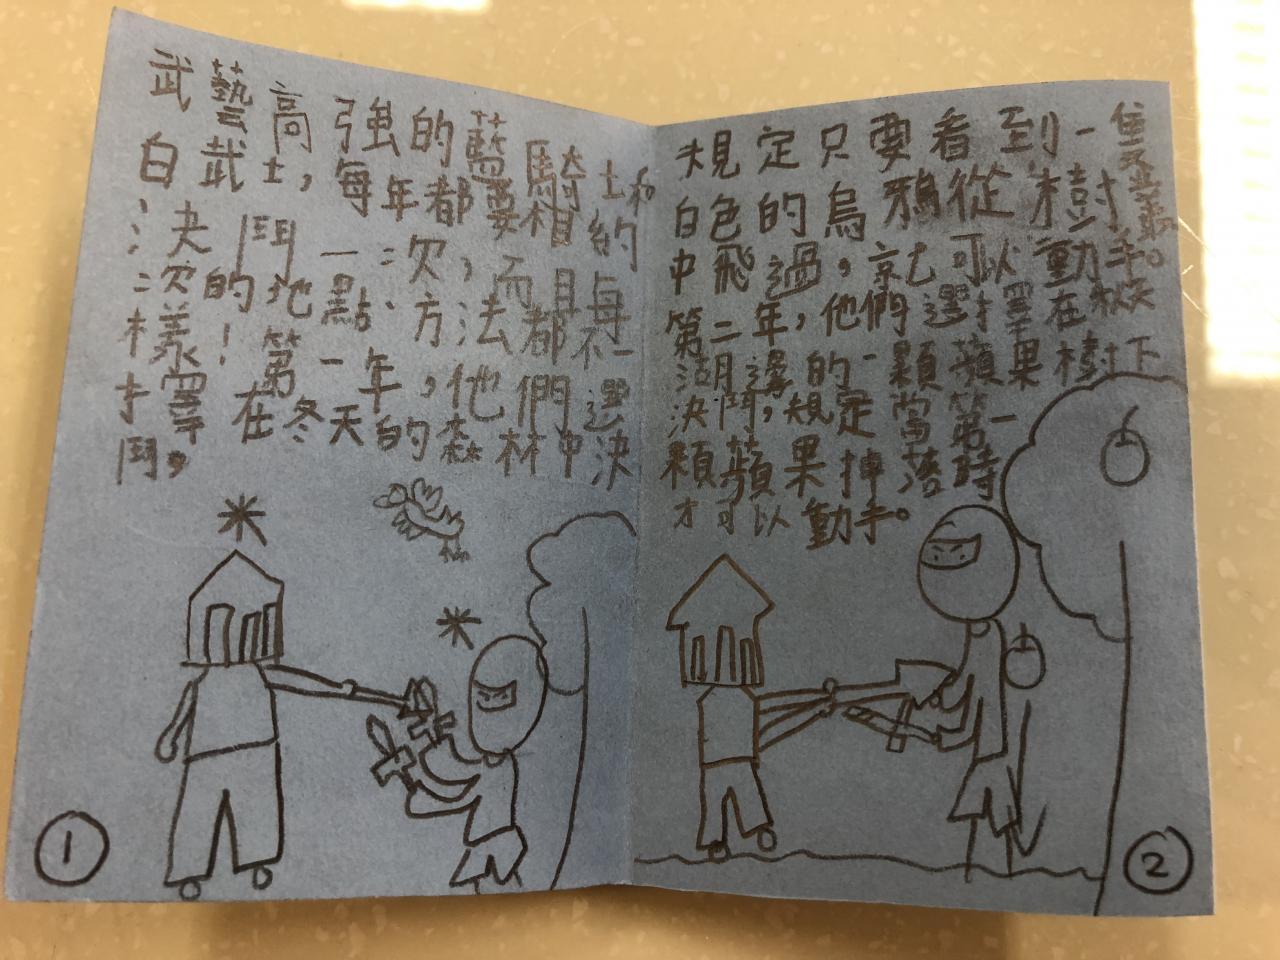 武藝高強的藍騎士和
白武士,每年都要相約
決鬥一次,而且每
次的地點、方法都不一
樣!第一年,他們選
擇在冬天的森林中決
鬥。
①
規定只要看到一隻
白色的烏鴉從樹叢
中飛過,就可以動手。
第二年,他們選擇在秋天
湖邊的一顆蘋果樹下
決鬥,規定當第一
顆蘋果掉落時
才可以動手。
②